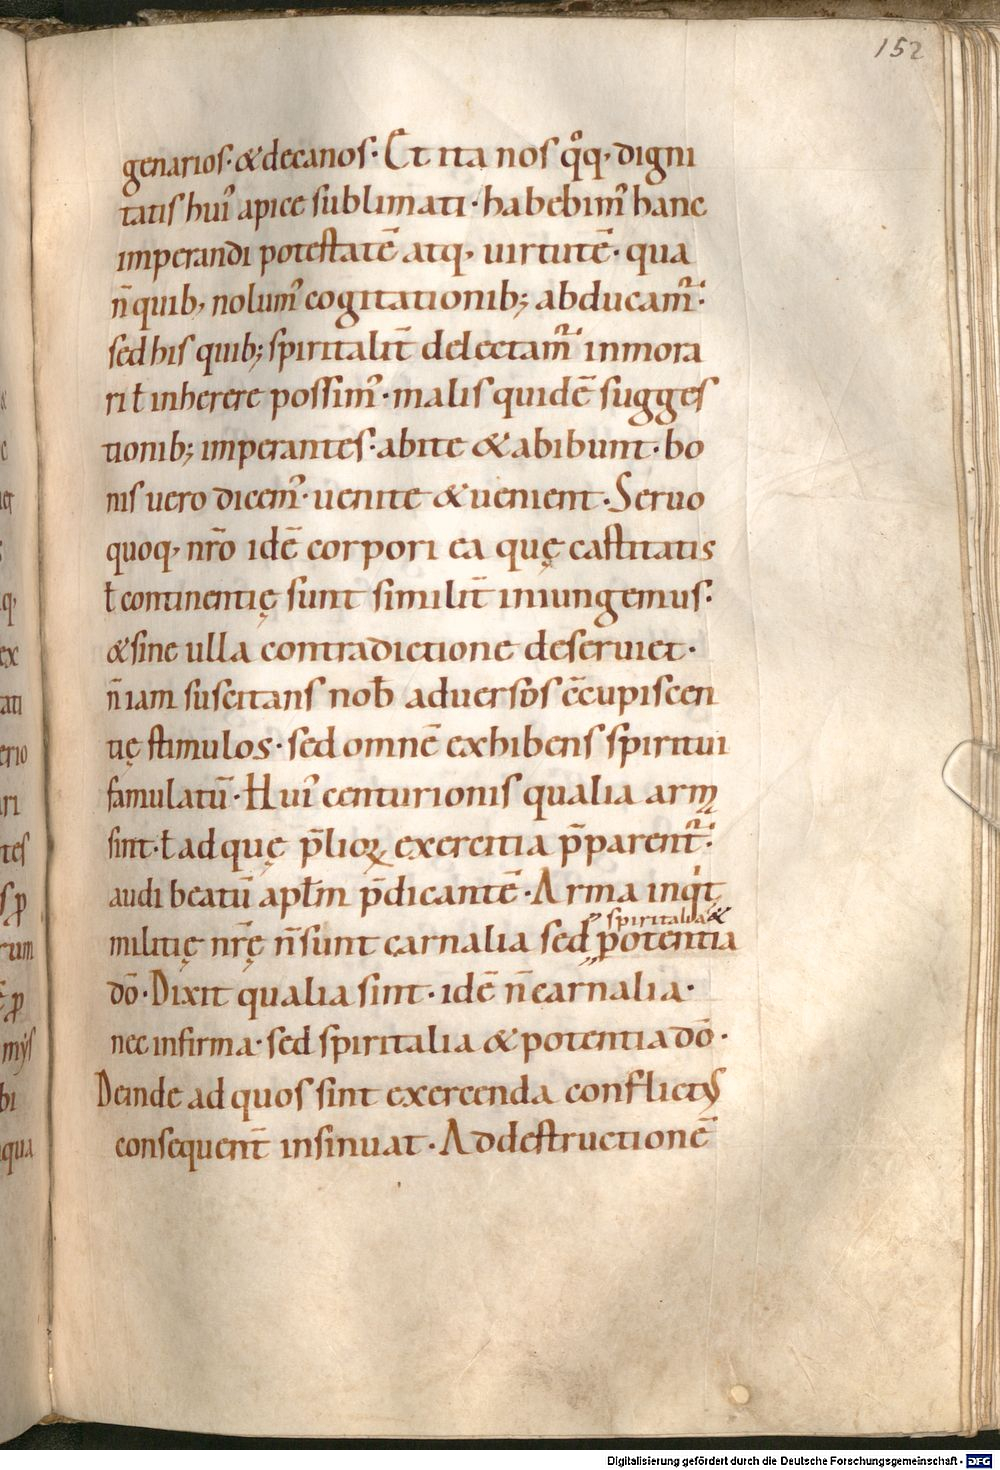 152
genarios· & decanos· Et ita nos qͦq, digni
tatis huiꝰ apice sublimati· habebimꝰ hanc
imperandi potestatē atq, uirtutē· qua
n̄ quib, nolumꝰ cogitationib; abducamᷣ·
sed his quib; spiritalit̄ delectamᷣ inmora
ri ƚ inherere possimꝰ· malis quidē sugges
tionib; imperantes· abite & abibunt· bo
nis uero dicemꝰ· uenite & uenient· Seruo
quoq, nr̄o idē corpori ea quę castitatis
ƚ continentię sunt similit̄ iniungemus·
& sine ulla contradictione deseruiet·
n̄ iam suscitans nob̄ aduersos c̄cupiscen
tię stimulos· sed omnē exhibens spiritui
famulatū· Huiꝰ centurionis qualia arma
sint· ƚ ad quę p̄lioꝝ exercitia p̄parentᷣ·
audi beatū apłm p̄dicantē· Arma inqͥt
spiritalia &
militię nr̄ę n̄ sunt carnalia sed potentia
dō· Dixit qualia sint· idē n̄ carnalia·
nec infirma· sed spiritalia & potentia dō·
Deinde ad quos sint exercenda conflictus
consequent̄ insinuat· Ad destructionē
Digitalisierung gefördert durch die Deutsche Forschungsgemeinschaft - DFG